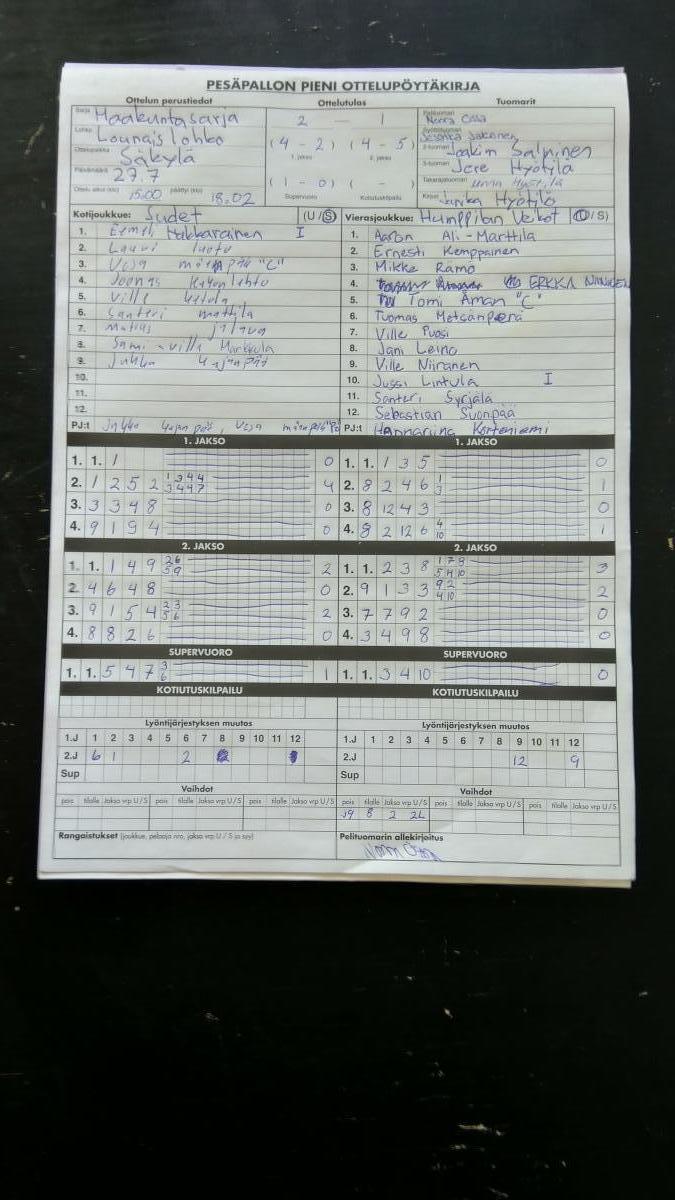 PESÄPALLON PIENI OTTELUPÖYTÄKIRJA
Ottelun perustiedot Ottelutulos Tuomarit
Sarja Maakuntasarja 2 — 1 Pelituomari
Lohko Lounais lohko Syöttötuomari
Ottelupaikka Säkylä (4 - 2) (4 - 5) 2-tuomari Joakim Salminen
1. jakso 2. jakso
Päivämäärä 27.7 3-tuomari Jere Hyötylä
(1 - 0) ( - ) Takarajatuomari
Ottelu alkoi (klo) 15.00 päättyi (klo) 18.02 Supervuoro Kotiutuskilpailu Kirjuri Hyötylä
Kotijoukkue: Sudet (U/S) Vierasjoukkue: Humppilan Veikot (U/S)
1. Eemeli Hakkarainen I 1. Aaron Ali-Marttila
2. Lauri 2. Ernesti Kemppainen
3. Vesa "C" 3. Mikke Rämö
4. Joonas 4. ERKKA NIINIKEN
5. Ville 5. Tomi Åman "C"
6. Santeri Mattila 6. Tuomas Metsänperä
7. Matias 7. Ville Puosi
8. Sami-Ville Markkula 8. Jani Leino
9. Jukka 9. Ville Niiranen
10. 10. Jussi Lintula I
11. 11. Santeri Syrjälä
12. 12. Sebastian Suonpää
PJ:t Jukka Vesa PJ:t HANNARIINA Korteniemi
1. JAKSO 1. JAKSO
1. 1. 1 0 1. 1. 1 3 5 0
2. 1 2 5 2 1 3 4 4 4 2. 8 2 4 6 1 1
3 4 4 7 3
3. 3 3 4 8 0 3. 8 12 4 3 0
4. 9 1 9 4 0 4. 8 2 12 6 4 1
10
2. JAKSO 2. JAKSO
1. 1. 1 4 9 2 6 2 1. 1. 2 3 8 1 7 8 3
5 9 5 4 10
2. 4 6 4 8 0 2. 9 1 3 3 9 2 2
4 10
3. 9 1 5 4 2 3 2 3. 7 7 9 2 0
5 6
4. 8 8 2 6 0 4. 3 4 9 8 0
SUPERVUORO SUPERVUORO
1. 1. 5 4 7 3 1 1. 1. 3 4 10 0
6
KOTIUTUSKILPAILU KOTIUTUSKILPAILU
Lyöntijärjestyksen muutos Lyöntijärjestyksen muutos
1.J 1 2 3 4 5 6 7 8 9 10 11 12 1.J 1 2 3 4 5 6 7 8 9 10 11 12
2.J 6 1 2 2.J 12 9
Sup Sup
Vaihdot Vaihdot
pois tilalle Jakso vrp U/S pois tilalle Jakso vrp U/S pois tilalle Jakso vrp U/S pois tilalle Jakso vrp U/S pois tilalle Jakso vrp U/S pois tilalle Jakso vrp U/S
8 2 2L
Rangaistukset (joukkue, pelaaja nro, jakso vrp U/S ja syy) Pelituomarin allekirjoitus